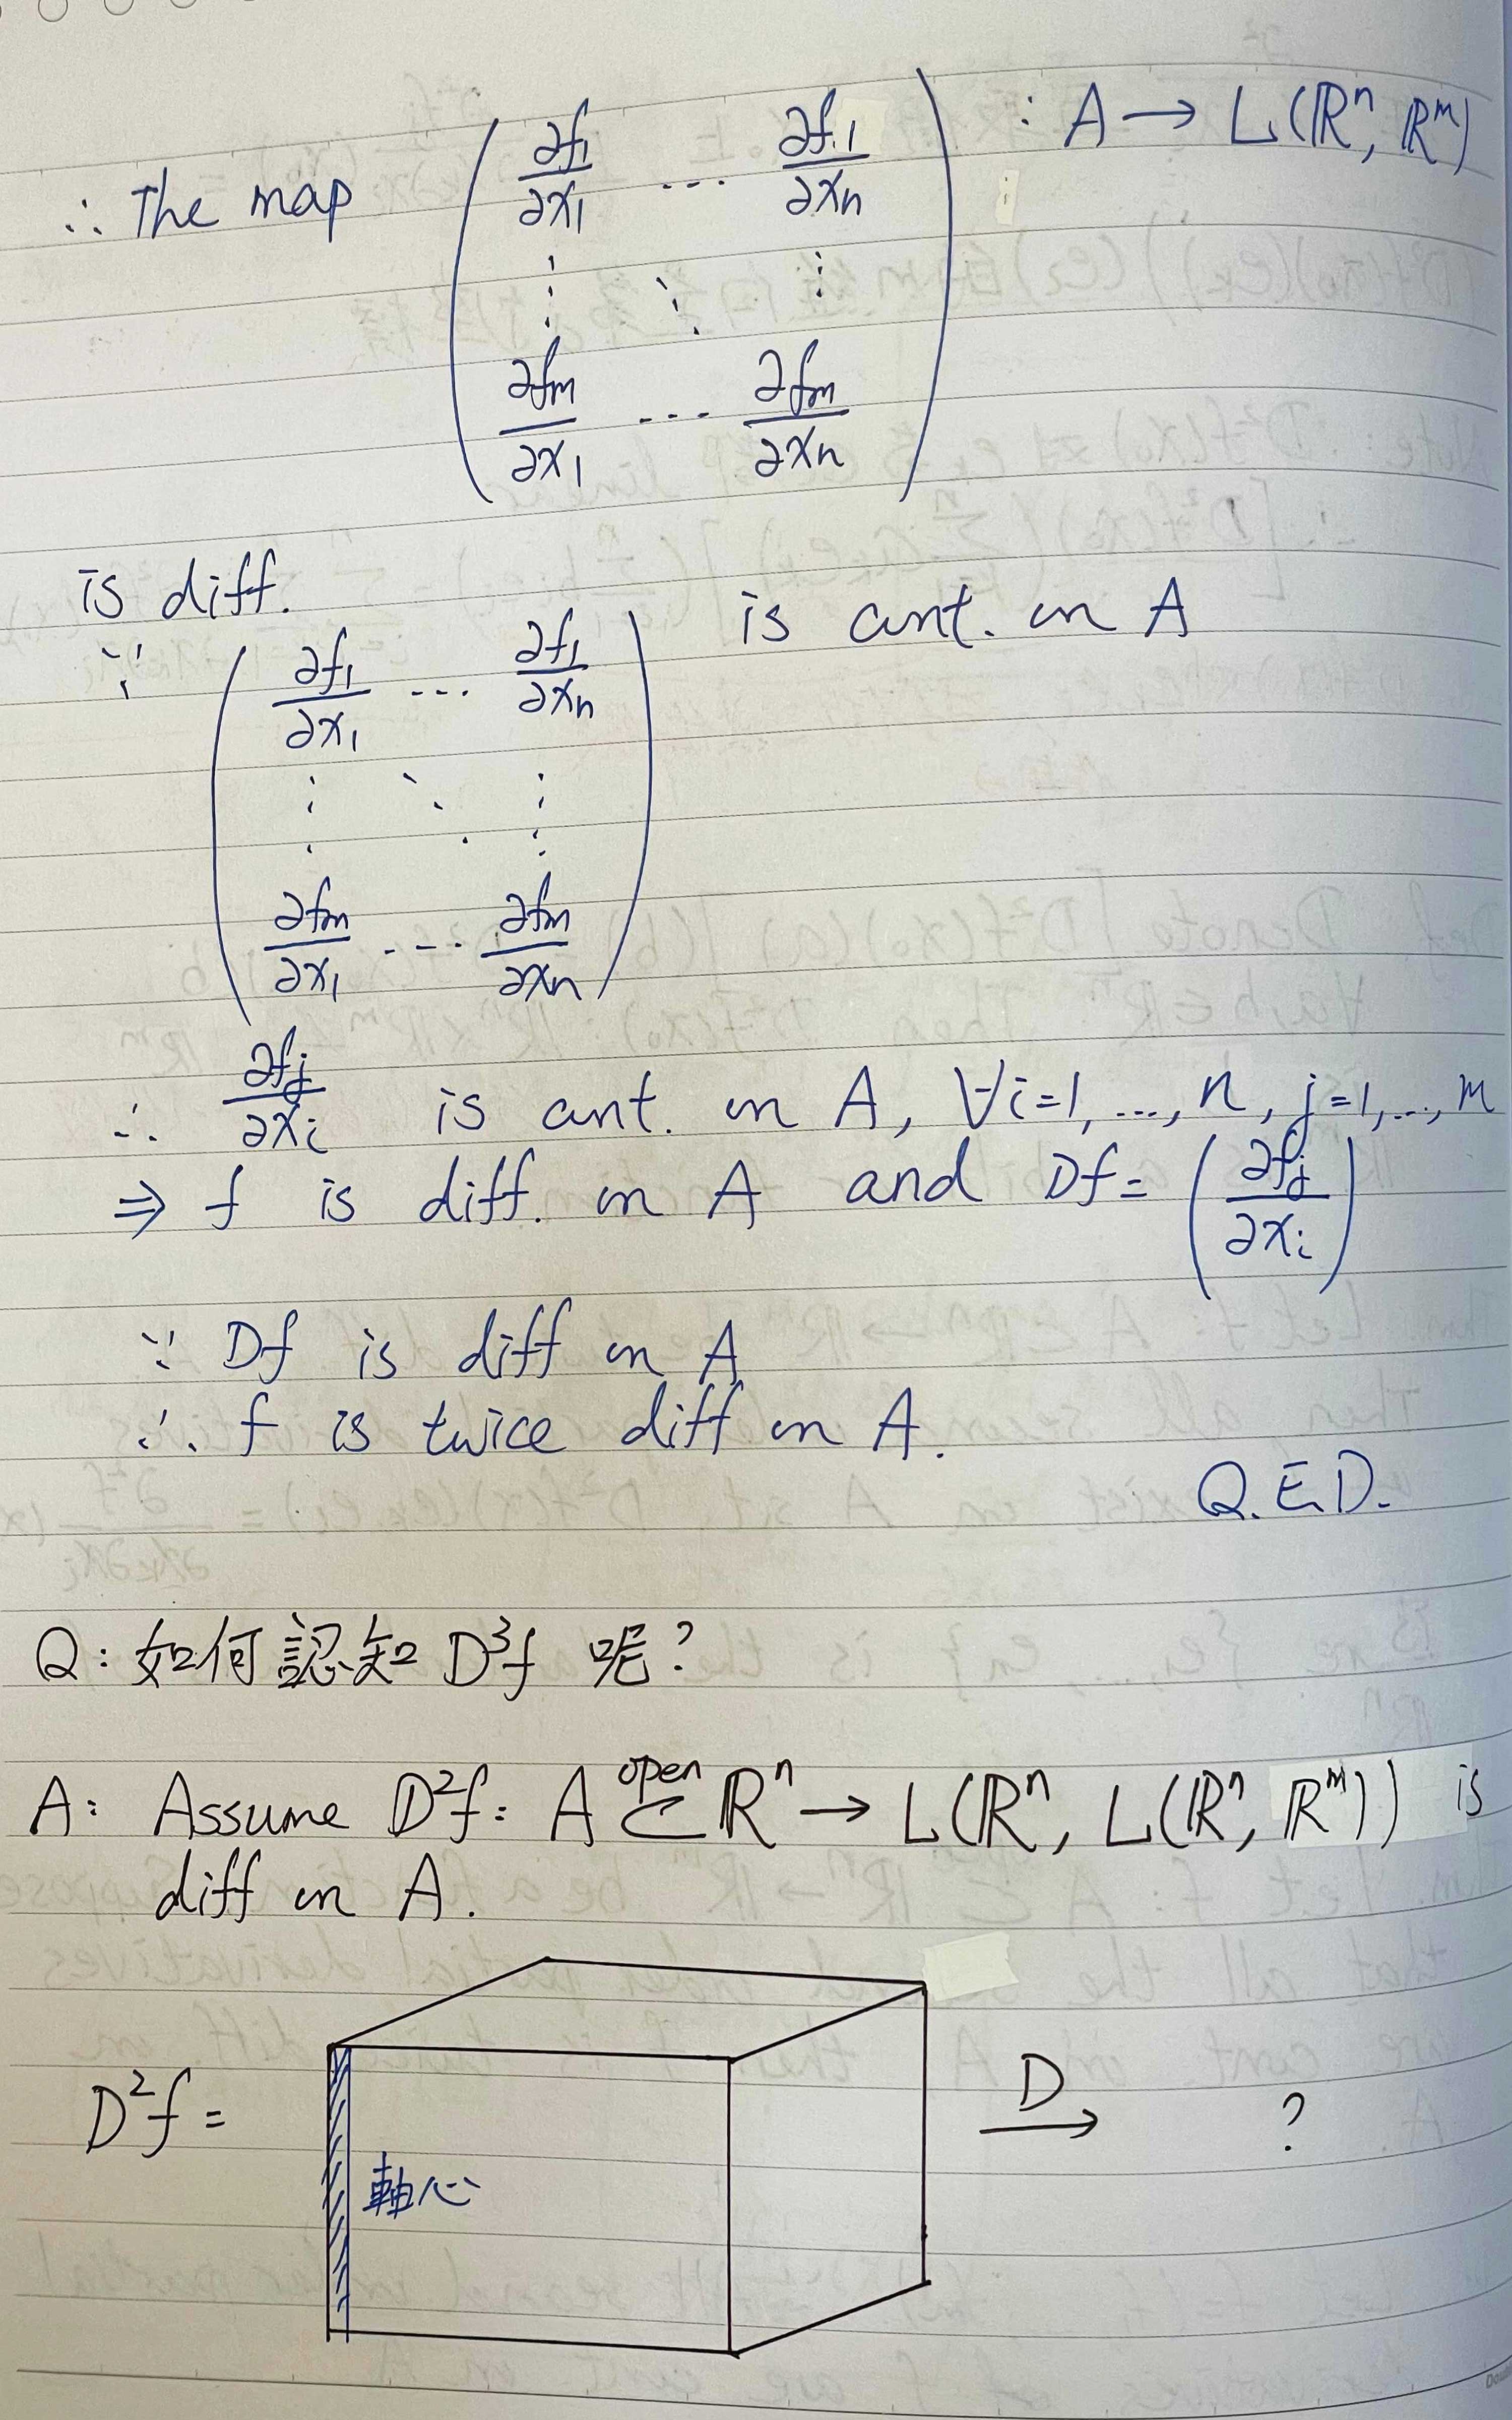 ∴ The map ( ∂f₁/∂x₁ ... ∂f₁/∂xₙ : A → L(ℝⁿ, ℝᵐ)
⋮ ⋱ ⋮
∂fₘ/∂x₁ ... ∂fₘ/∂xₙ )
is diff.
∵ ( ∂f₁/∂x₁ ... ∂f₁/∂xₙ is cont. on A
⋮ ⋱ ⋮
∂fₘ/∂x₁ ... ∂fₘ/∂xₙ )
∴ ∂fⱼ/∂xᵢ is cont. on A, ∀i=1, ..., n, j=1, ..., m
⇒ f is diff. on A and Df = (∂fⱼ/∂xᵢ)
∵ Df is diff on A
∴ f is twice diff on A.
Q.E.D.
Q: 如何認知 D³f 呢?
A: Assume D²f: A ⊂ open ℝⁿ → L(ℝⁿ, L(ℝⁿ, ℝᵐ)) is
diff on A.
D²f = 軸心 D → ?